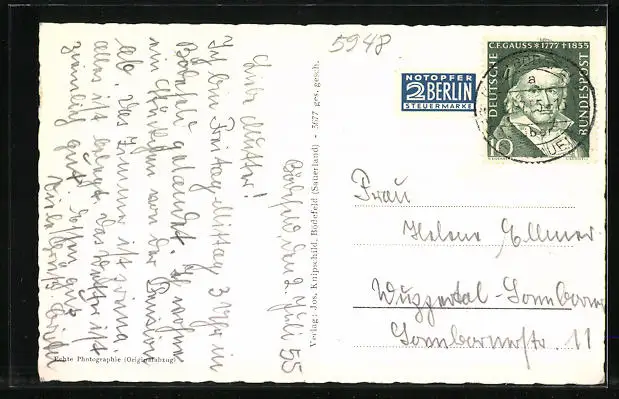 Bödefeld, den 2. Juli 55
Liebe Mutter!
Ich bin Freitag Mittag 3 Uhr in
Bödefeld gelandet. Ich wohne
ein Stückchen von der Pension
ab. Das Zimmer ist prima
alles ist belegt. das Wetter ist
ziemlich gut. Hoffen
Viele Grüße
5948
NOTOPFER
2 BERLIN
STEUERMARKE
C.F.GAUSS * 1777 † 1855
DEUTSCHE
BUNDESPOST
10
a
Frau
Helene Ellmer
Wuppertal-Sonnborn
Sonnbornerstr. 11
Verlag: Jos. Knipschild, Bödefeld (Sauerland) - 5677 ges. gesch.
Echte Photographie (Originalabzug)